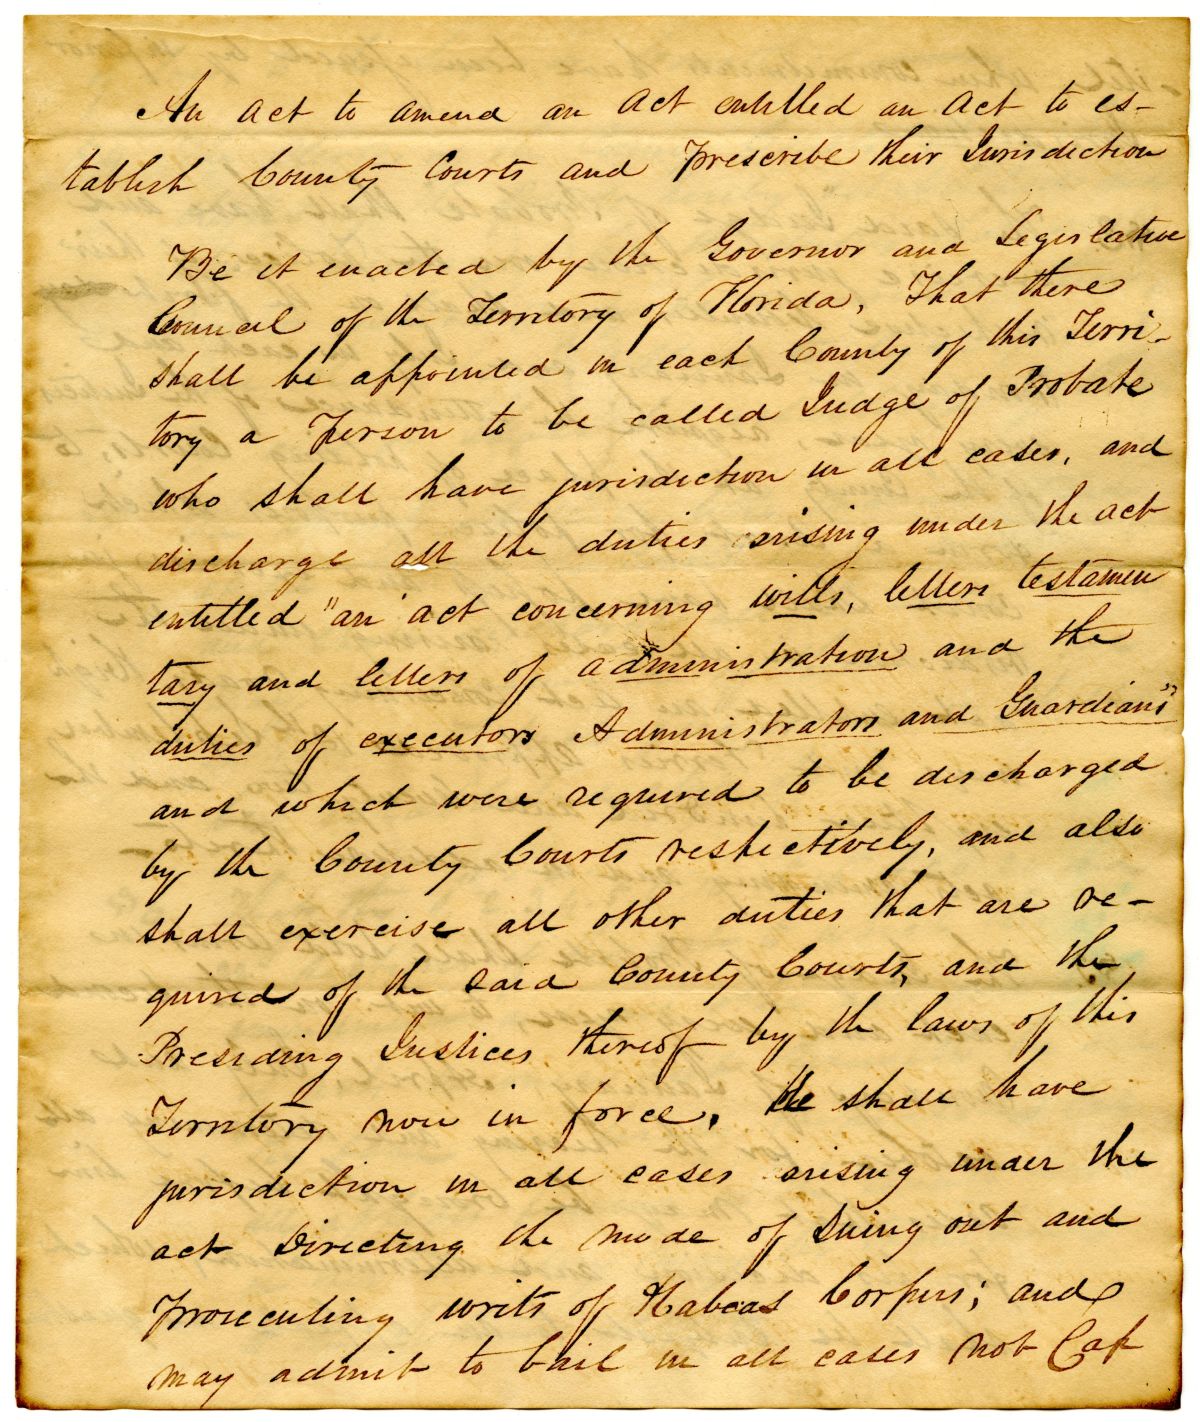 An act to amend an act entitled an act to es-
tablish County Courts and prescribe their Jurisdiction
Be it enacted by the Governor and Legislative
Council of the Territory of Florida, That there
shall be appointed in each County of this Terri-
tory a person to be called Judge of Probate
who shall have jurisdiction in all cases, and
discharge all the duties arising under the act
entitled "an act concerning wills, letters testamen
tary and letters of administration and the
duties of executors Administrators and Guardians"
and which were required to be discharged
by the County Courts respectively, and also
shall exercise all other duties that are re-
quired of the said County Courts, and the
Presiding Justices thereof by the laws of this
Territory now in force, He shall have
jurisdiction in all cases arising under the
act Directing the mode of Suing out and
prosecuting writs of Habeas Corpus; and
may admit to bail in all cases not Cap